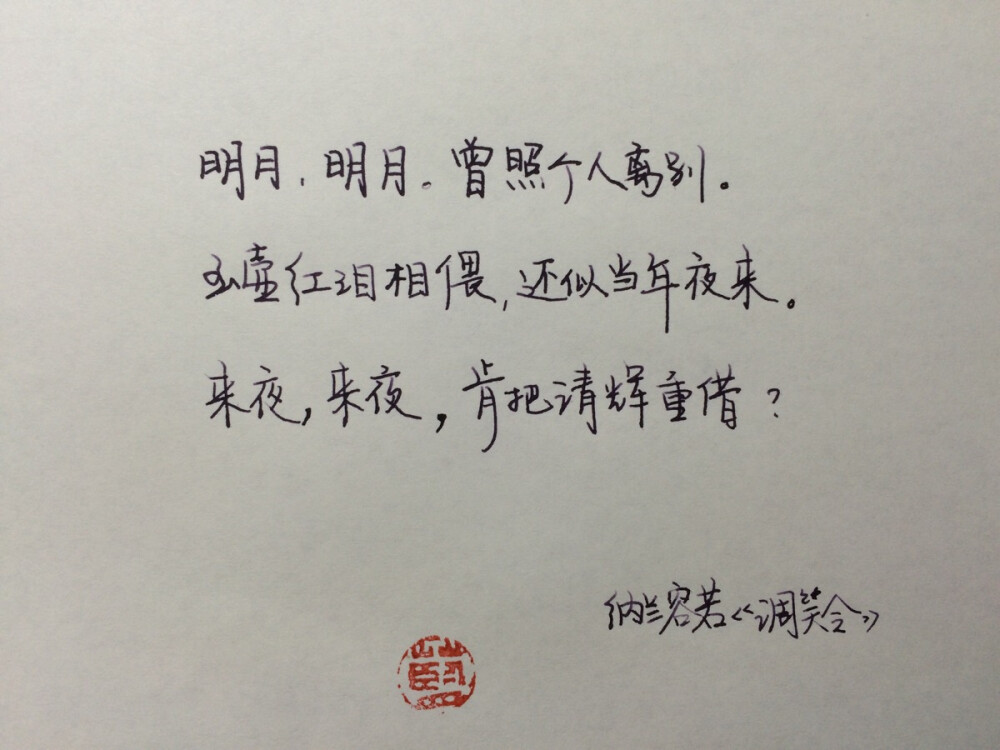 明月,明月。曾照个人离别。
玉壶红泪相偎,还似当年夜来。
来夜,来夜,肯把清辉重借?
纳兰容若《调笑令》